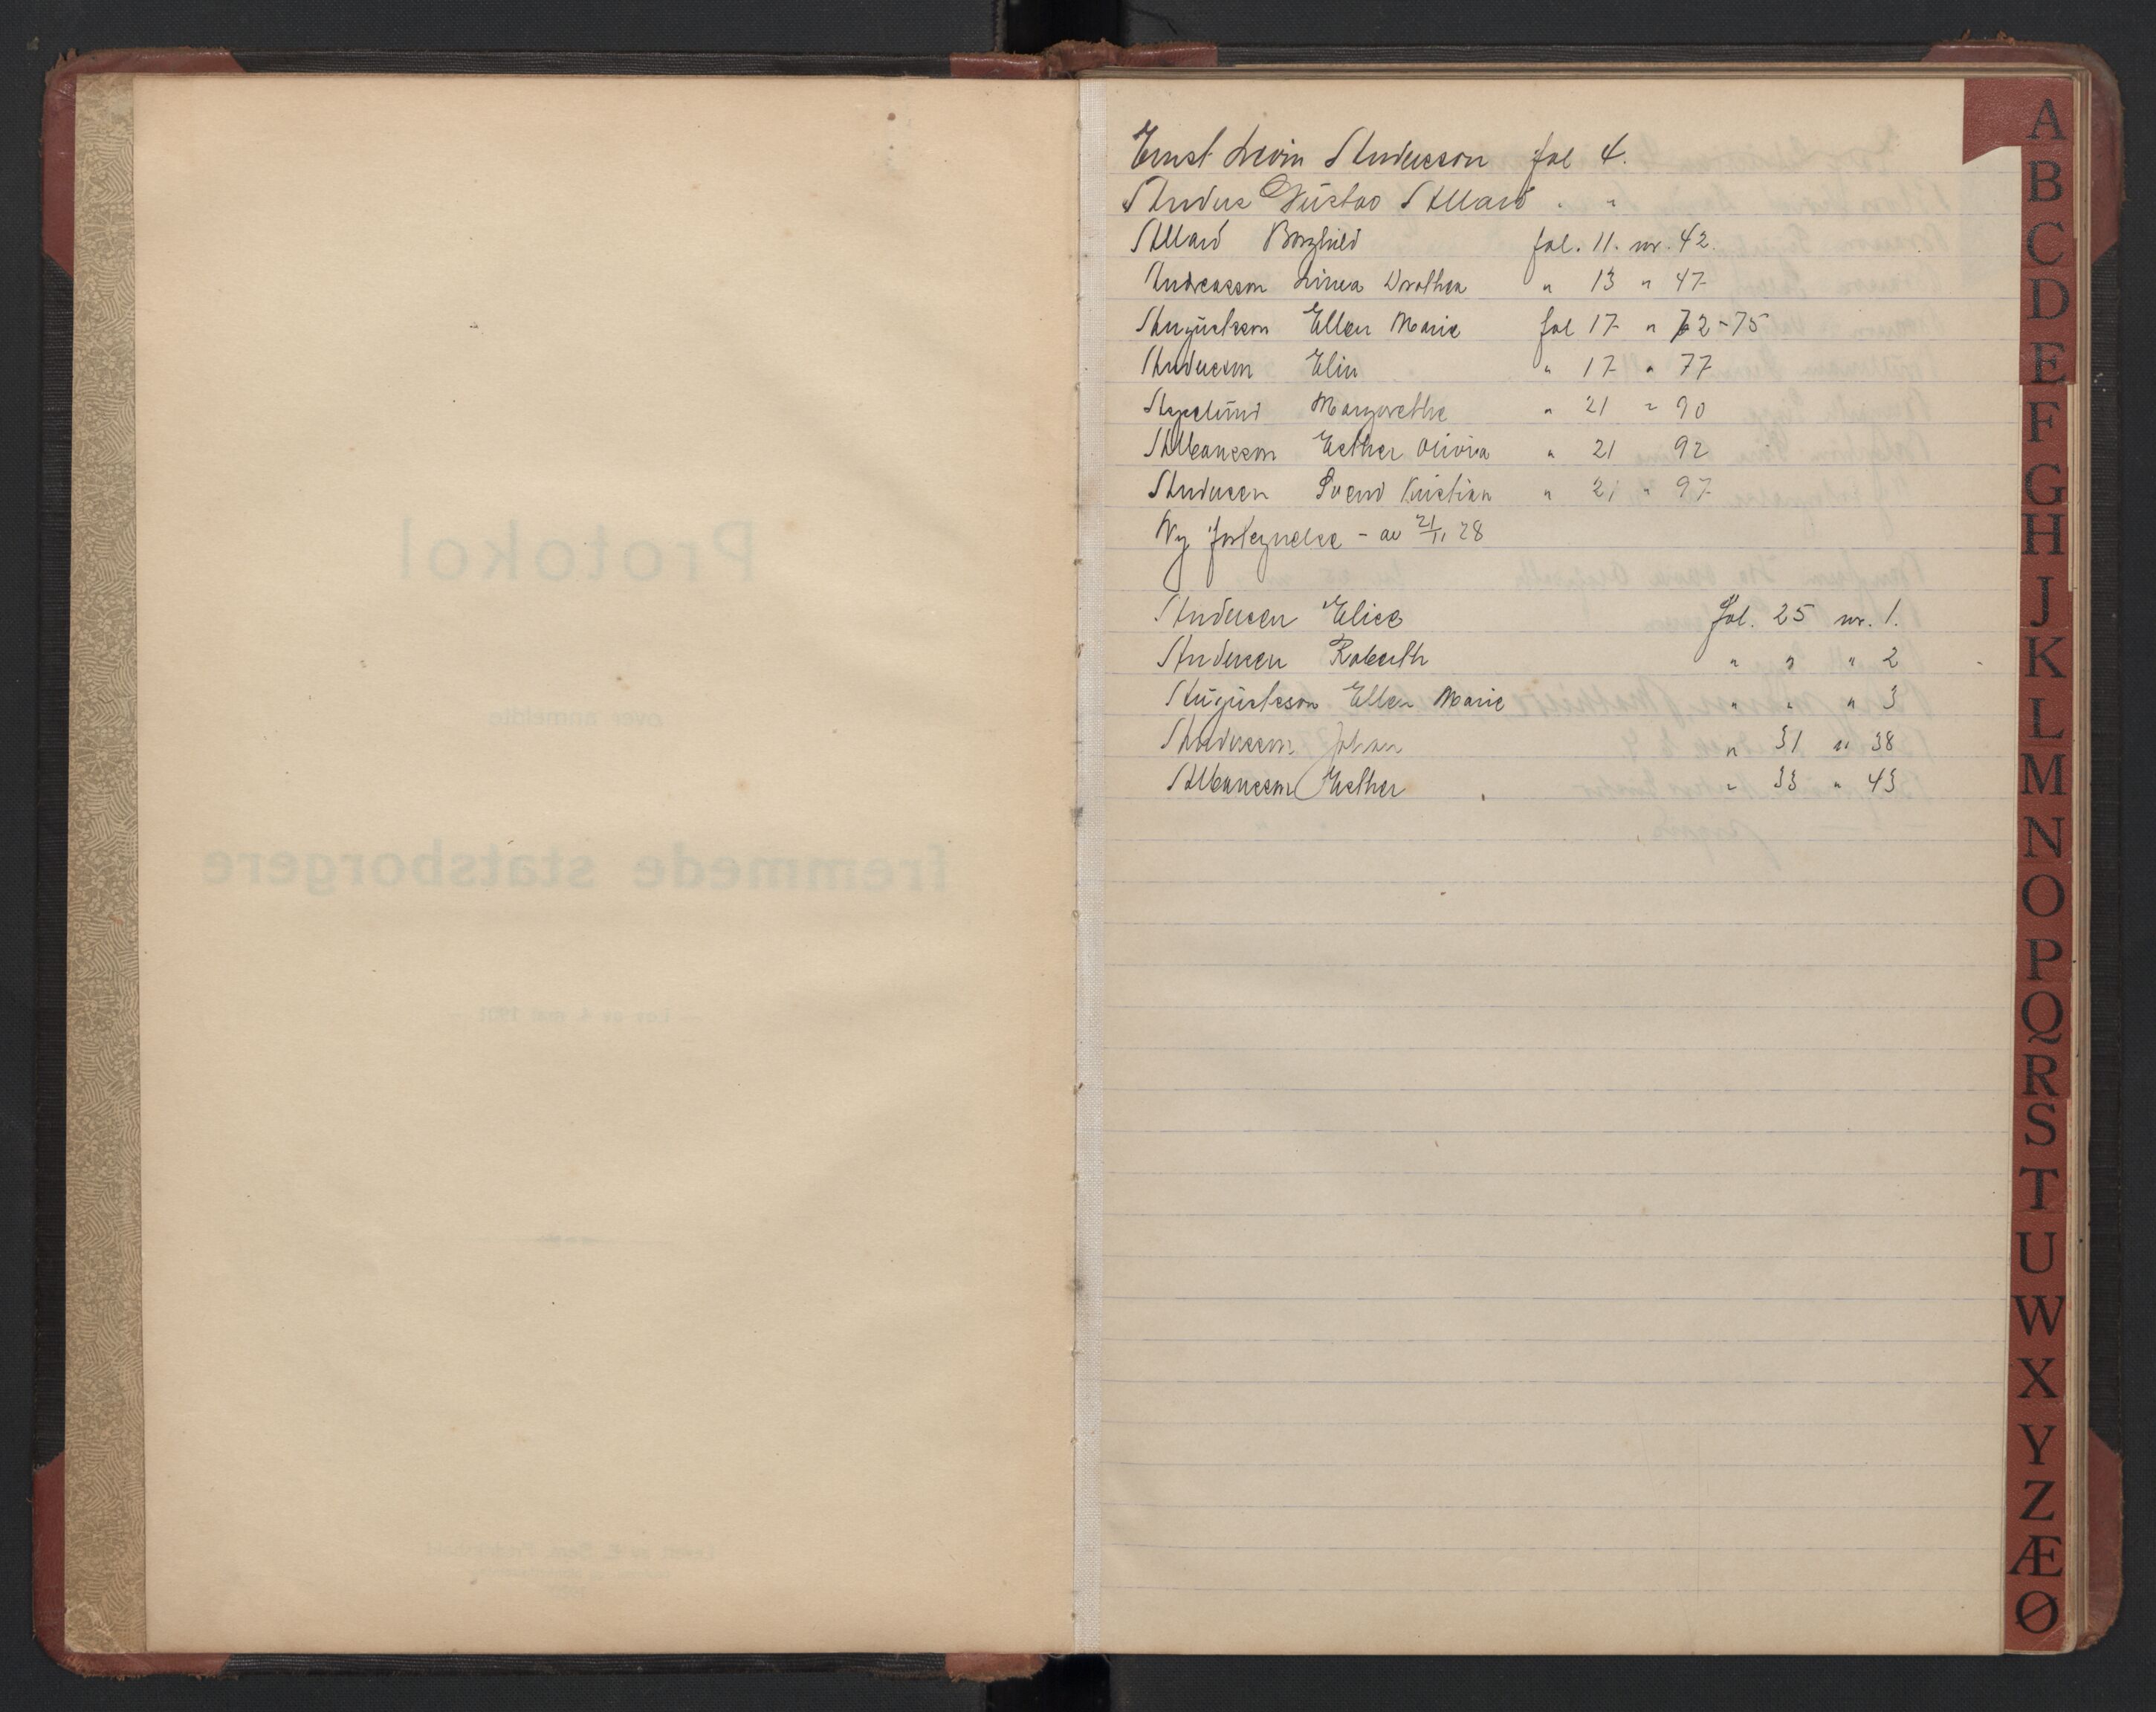 Protokol
over anmeldte
fremmede statsborgere
— Lov av 4. mai 1901 —
Ernst Levin Andersson fol 4.
Anders Gustav Allard " "
Allard Borghild fol. 11. nr. 42.
Andreasson Linea Dorothea " 13 " 47
Augustsson Ellen Marie fol 17 " 72-75
Andersson Elin " 17 " 77
Margarethe " 21 " 90
Albansson Esther Olivia " 21 92
Andersen Svend Kristian " 21 " 97
Ny fortegnelse - av 21/11 28
Andersen Elise fol. 25 nr. 1.
Andersen Roberth " " " 2
Augustsson Ellen Marie " " " 3
Andersson Johan " 31 " 38
Albansson Esther " 33 " 43
A
B
C
D
E
F
G
H
J
K
L
M
N
O
P
Q
R
S
T
U
W
X
Y
Z
Æ
Ø